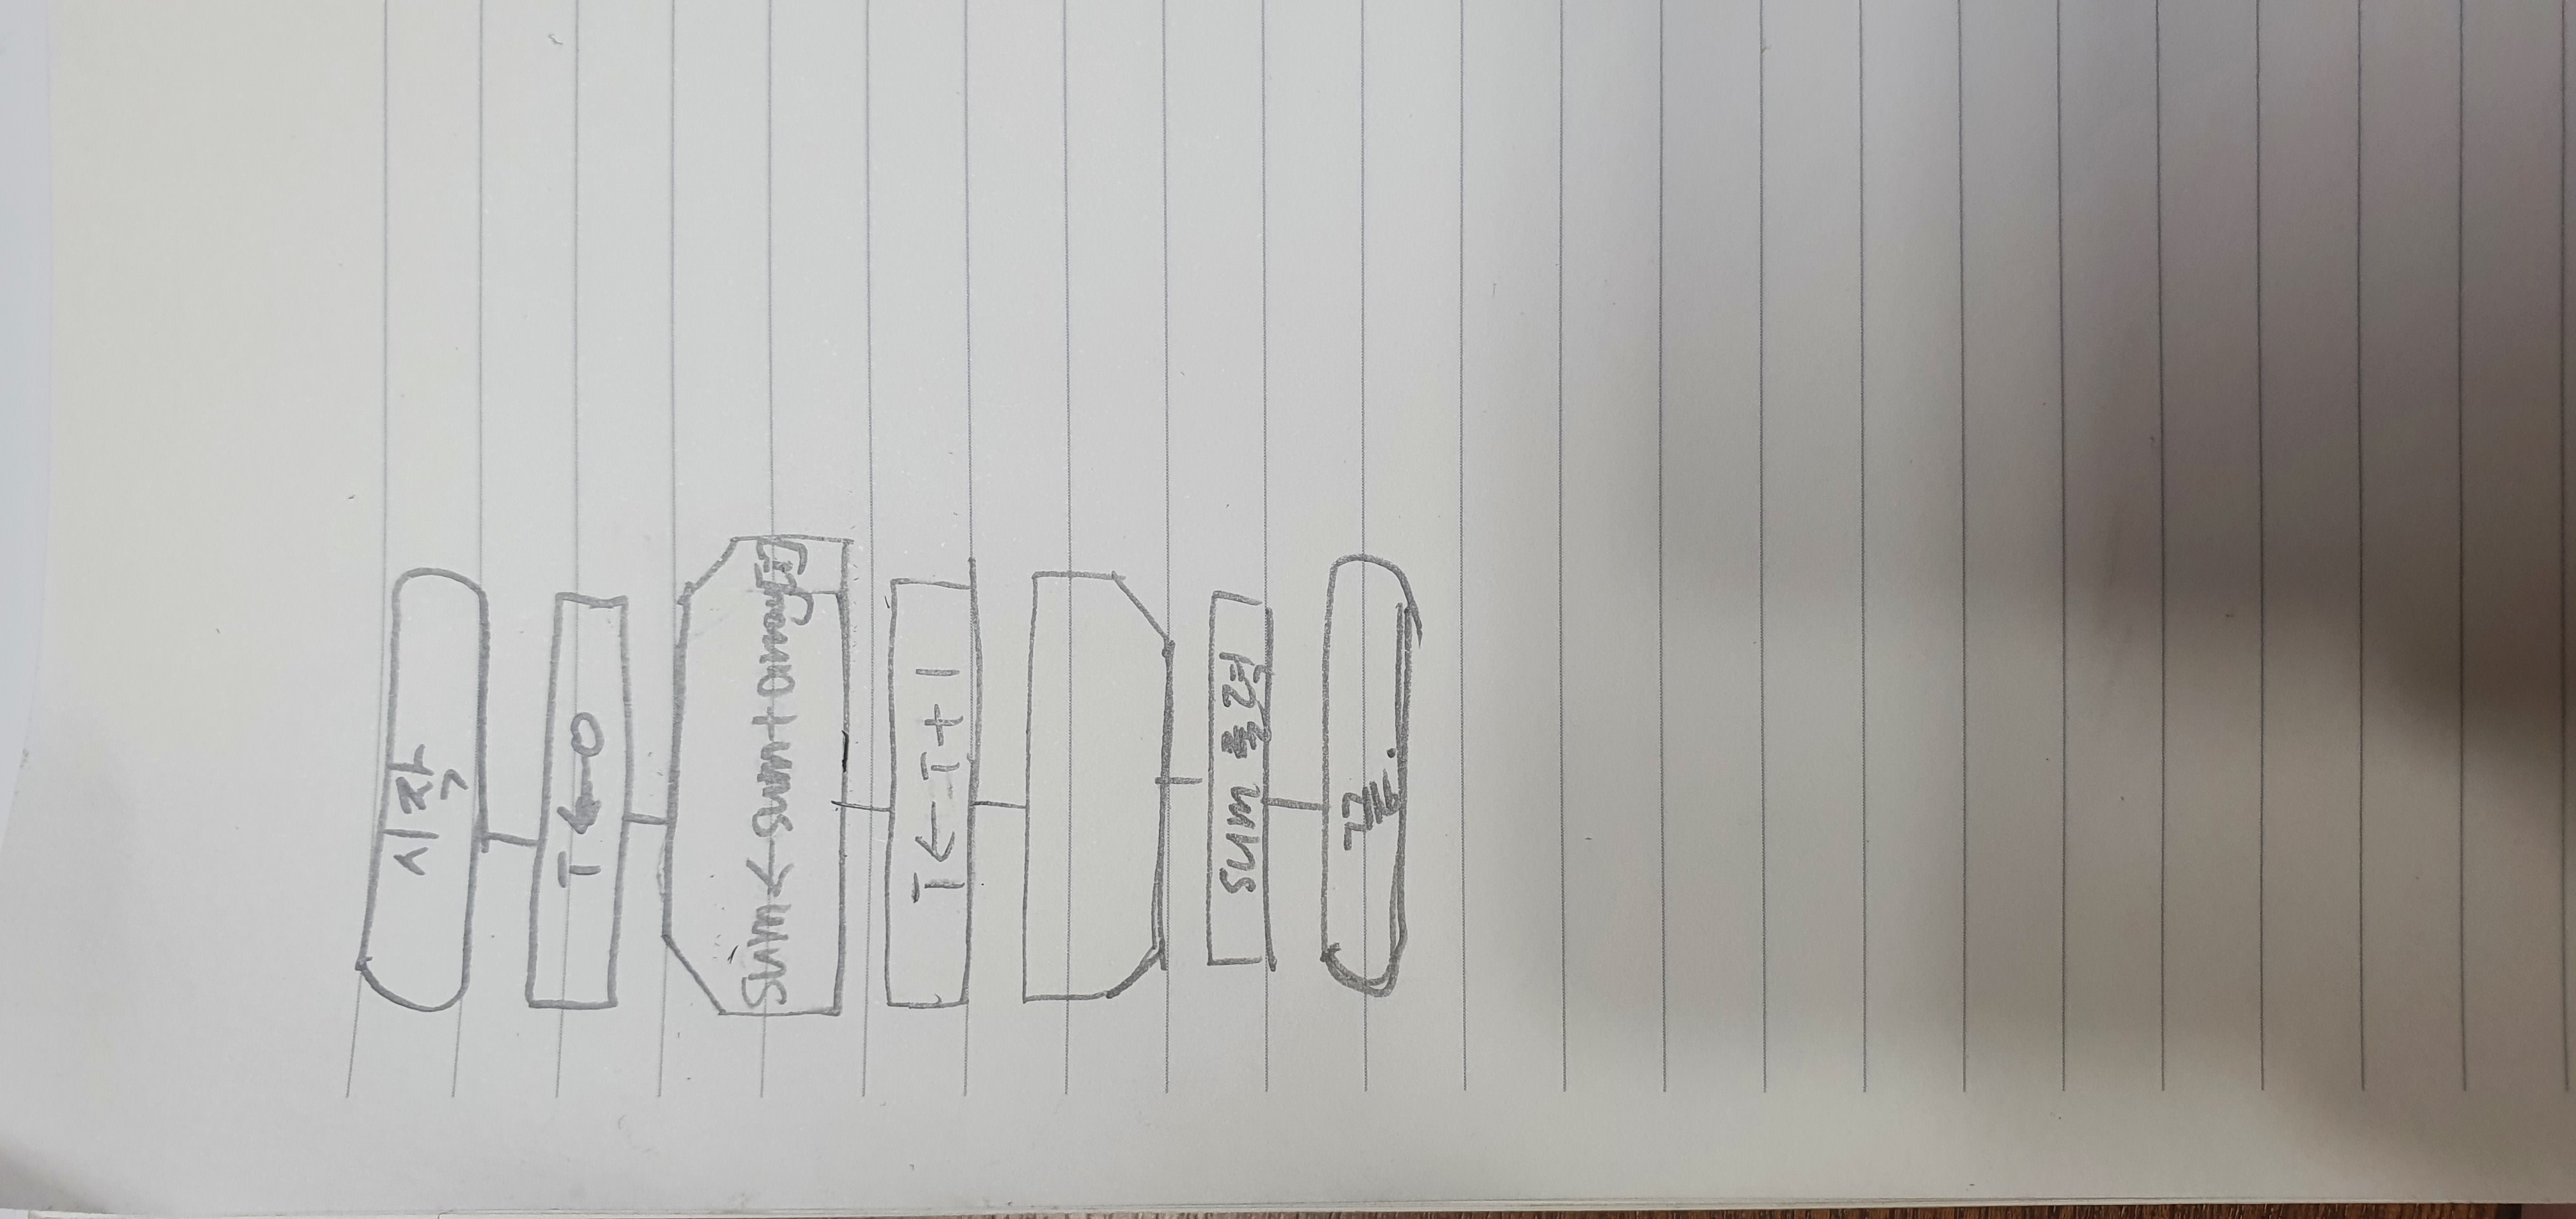 시작
i ← 0
sum ← sum + array[i]
i ← i + 1
sum 출력
끝.